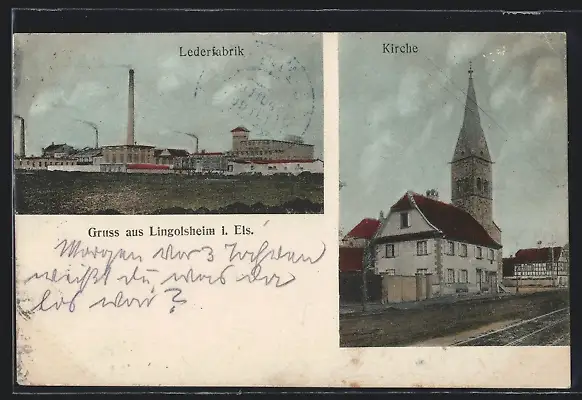 Lederfabrik
Kirche
Gruss aus Lingolsheim i. Els.
Morgen vor 3 Jahren
weißt du was da
los war?